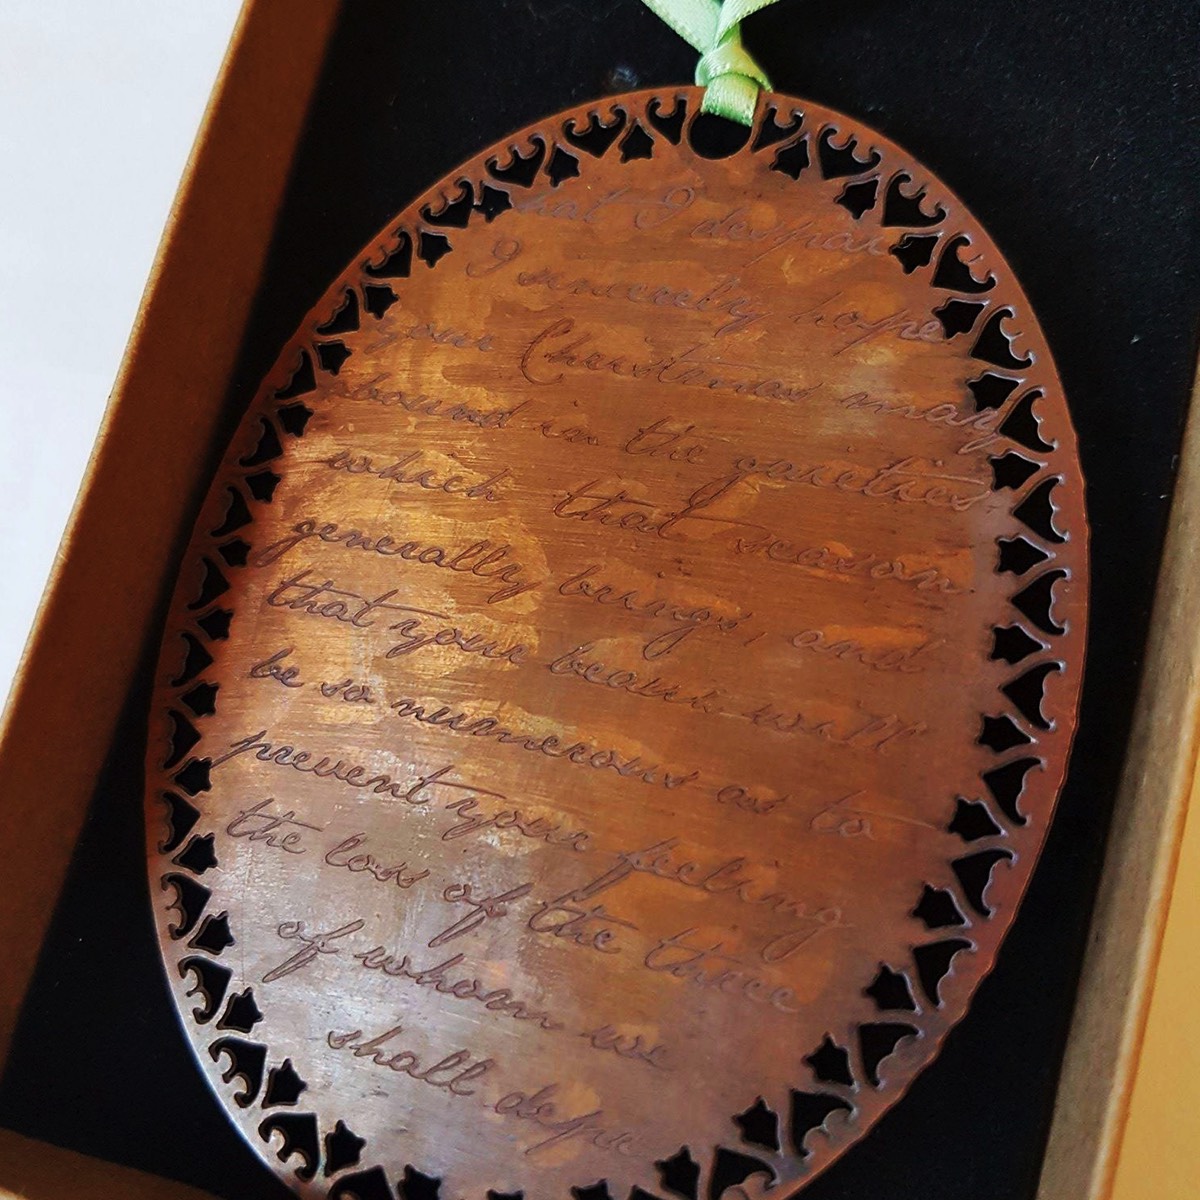 that I despair
I sincerely hope
your Christmas may
abound in the gaieties
which that season
generally brings, and
that your beaux will
be so numerous as to
prevent your feeling
the loss of the three
of whom we
shall depri